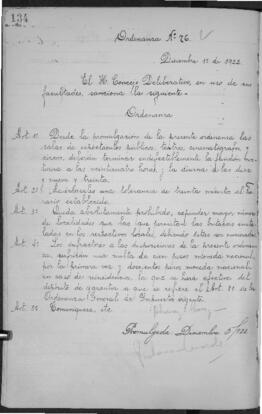 134
Ordenanza Nº 76.
Diciembre 1º de 1922.
El H. Concejo Deliberativo, en uso de sus
facultades, sanciona la siguiente
Ordenanza
Art. 1º Desde la promulgación de la presente ordenanza las
salas de espectáculos públicos, teatros, cinematógrafos y
circos, deberán terminar indefectiblemente la función
a las veinticuatro horas, y las diurnas a las diez
y nueve y treinta.
Art. 2º Acuérdase una tolerancia de treinta minutos al
establecido.
Art. 3º Queda absolutamente prohibido, expender mayor
de localidades que las que
en los respectivos locales,
Art. 4º Los infractores a las disposiciones de la presente
sufrirán una multa de cien pesos moneda nacional,
por la primera vez y doscientos pesos moneda nacional
en caso de reincidencia, la que se hará efectiva del
depósito de garantía a que se refiere el Art.
Ordenanza General de Impuestos vigente.
Art. 5º Comuníquese, etc.
Promulgada Diciembre